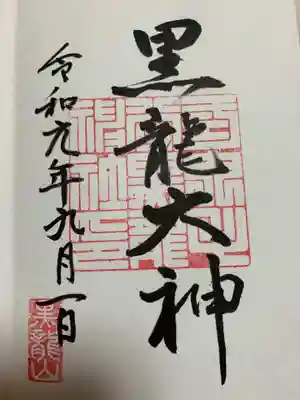 黒龍大神
令和元年九月一日
黒龍山